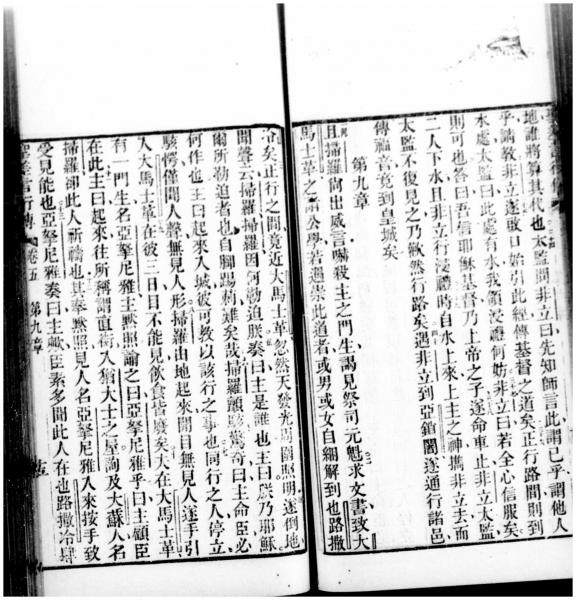 地誰將算其代也太監問非立曰先知師言此謂己乎謂他人
乎請教非立遂啟口始引此經傳基督之道矣正行路間則到
水處太監曰此處有水我領浸禮何妨非立曰若全心信服矣
則可也答曰吾信耶穌基督乃上帝之子遂命車止非立太監
二人下水且非立行浸禮時自水上來上主之神攜非立去而
太監不復見之乃歡然行路矣遇非立到亞鎖遂通行諸邑
傳福音竟到皇城矣
第九章
且掃羅尚出威言嚇殺主之門生謁見祭司元魁求文書致大
馬士革之公學若遇崇此道者或男或女自綑解到也路撒
冷矣正行之間竟近大馬士革忽然天發光周圍照明遂倒地
聞聲云掃羅掃羅因何勒迫朕奏曰主是誰也主曰朕乃耶穌
爾所勒迫者也自腳踢莿難矣哉掃羅顫駭驚奇曰主命臣必
何作也主曰起來入城彼可教以該行之事也同行之人停立
駭愕僅聞人聲無見人形掃羅由地起來開目無見人遂手引
入大馬士革在彼三日目不能見飲食皆廢矣夫在大馬士革
有一門生名亞拏尼雅主默照諭之曰亞拏尼雅乎主顧臣
在此主曰起來往所稱謂直街入猶大士之屋詢及大蘇人名
掃羅卻此人祈禱也其奉默照見人名亞拏尼雅入來按手致
受見能也亞拏尼雅奏曰主歟臣素多聞此人在也路撒冷肆
聖差言行傳
卷五
第九章